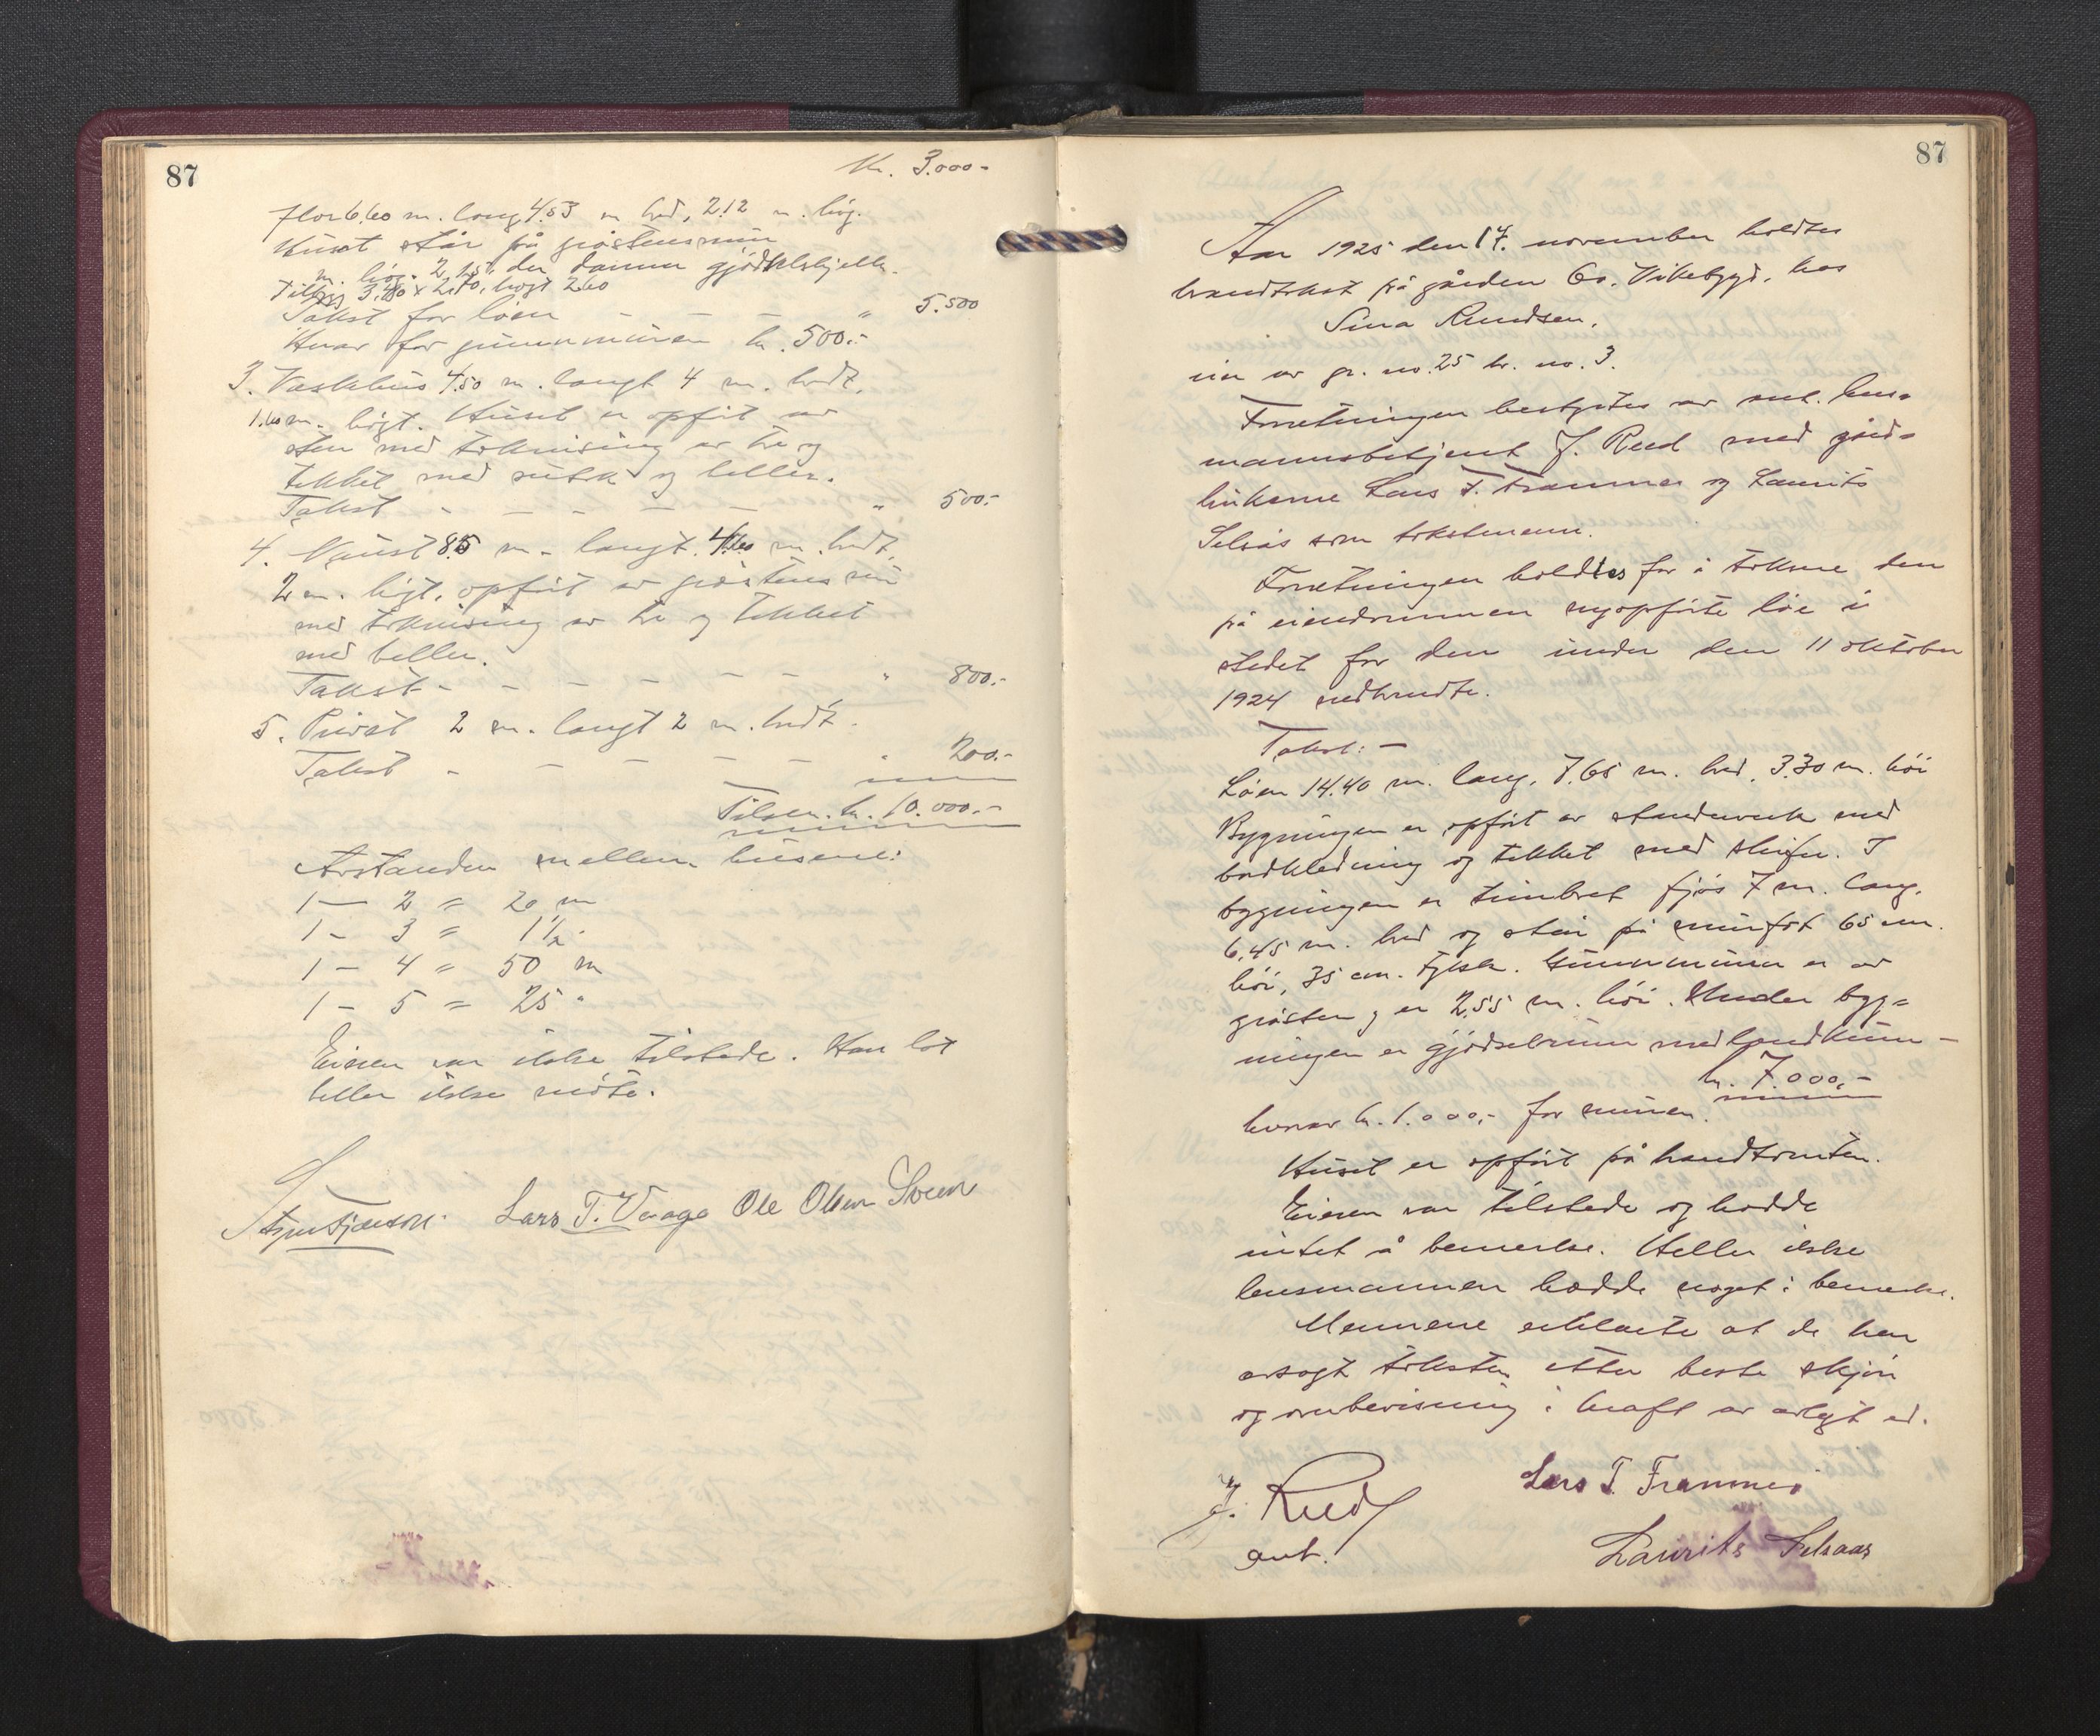 87
Kr. 3.000-
flor 6.60 m. lang 4.53 m bred, 2.12 m. høg.
Huset står på gråstensmur
m. høg. 2,15, der danner gjødselskjeller.
Tilbygg 3.40 x 2.70, høgt 2.60
Takst for løen — — — " 5.500
Hvar for grunnmuren kr. 500.-
3. Vaskhus 4.50 m. langt 4 m. bredt,
1.60 m. høgt. Huset er opført av
sten med tekning av tre og
tekket med sutak og heller.
Takst - — — — — " 500.-
4. Naust 8.5 m. langt. 4.60 m. bredt,
2 m. høgt, opført av gråstens mur
med av tre og tekket
med heller.
Takst - - - - - - - " 800.-
5. Privat 2 m. langt 2 m. bredt.
Takst - — — — — — " 200.-
Tilsm. kr. 10.000.-
Avstanden mellem husene:
1 — 2 = 20 m
1 - 3 = 1½ "
1 - 4 = 50 m
1 - 5 = 25 "
Eieren var ikke tilstede. Han lot
heller ikke møte.
Lars T. Vaage Ole Olsen Sveen
87
Aar 1925 den 17. november holdtes
brandtakst på gården Go. Vikebygd, hos
Sina Knudsen,
eier av gr. no. 25 br. no. 3.
Forretningen bestyrtes av aut. lens-
mannsbetjent J. Reed med gård-
brukerne Lars T. Framnes og Laurits
Selsås som takstmenn.
Forretningen holdtes for å taksere den
på eiendommen nyopførte løe i
stedet for den under den 11 oktober
1924 nedbrendte.
Takst: —
Løen 14.40 m. lang, 7.65 m. bred, 3.30 m. høi
Bygningen er opført av standerverk med
bordkledning og tekket med skifer. I
bygningen er timbret fjøs 7 m. lang,
6,45 m. bred og står på murfot 65 cm.
høi, 35 cm. tykk. Grunnmuren er av
gråsten og er 2.55 m. høi. Under byg=
ningen er gjødselrum med landkum -
kr. 7.000.-
hvorav kr. 1.000,- for muren.
Huset er opført på brandtomten.
Eieren var tilstede og hadde
intet å bemerke. Heller ikke
lensmannen hadde noget å bemerke.
Mennene erklærte at de har
avsagt taksten etter beste skjøn
og overbevisning i kraft av avlagt ed.
J. Reed
aut.
Lars T. Framnes
Laurits Selsaas